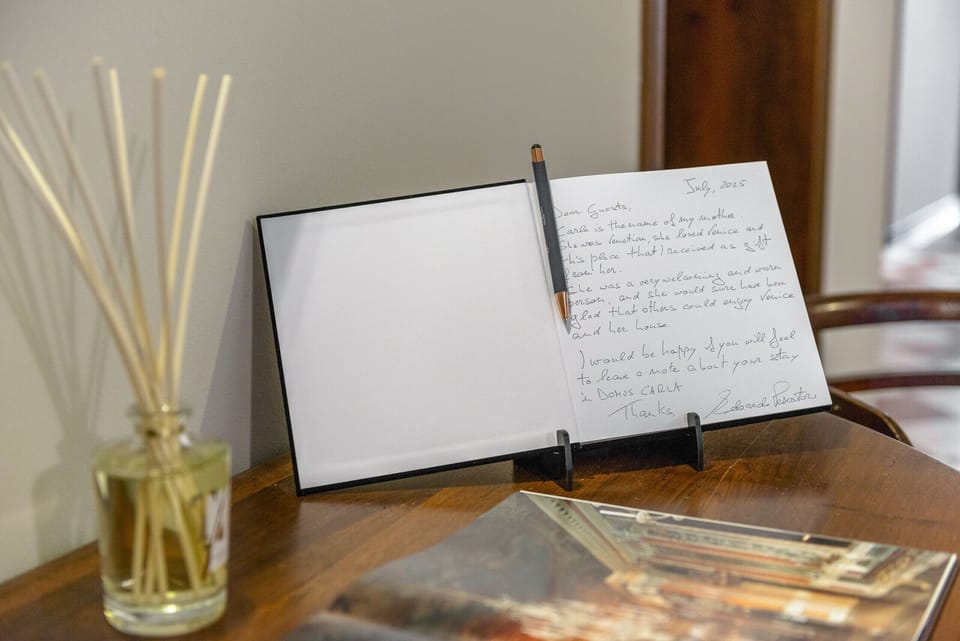 July, 2025
Dear Guests,
Carla is the name of my mother.
She was Venetian, she loved Venice and
this place that I received as gift
from her.
She was a very welcoming and warm
person, and she would sure had been
glad that others could enjoy Venice
and her house
I would be happy if you will feel
to leave a note about your stay
in DOMUS CARLA
Thanks